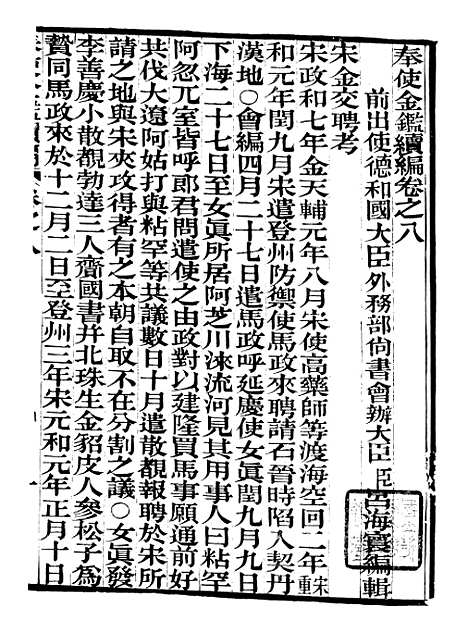 奉使金鑑續編卷之八
前出使德和國大臣外務部尙書會辦大臣臣呂海寰編輯
宋金交聘考
宋政和七年金天輔元年八月宋使高藥師等渡海空回二年宋重
和元年閏九月宋遣登州防禦使馬政來聘請石晉時陷入契丹
漢地○會編四月二十七日遣馬政呼延慶使女眞閏九月九日
下海二十七日至女眞所居阿芝川淶流河見其用事人曰粘罕
阿忽兀室皆呼郎君問遣使之由政對以建隆買馬事願通前好
共伐大遼阿姑打與粘罕等共議數日十月遣散覩報聘於宋所
請之地與宋夾攻得者有之本朝自取不在分割之議○女眞發
李善慶小散覩勃達三人齎國書并北珠生金貂皮人參松子為
贄同馬政來於十二月二日至登州三年宋元和元年正月十日